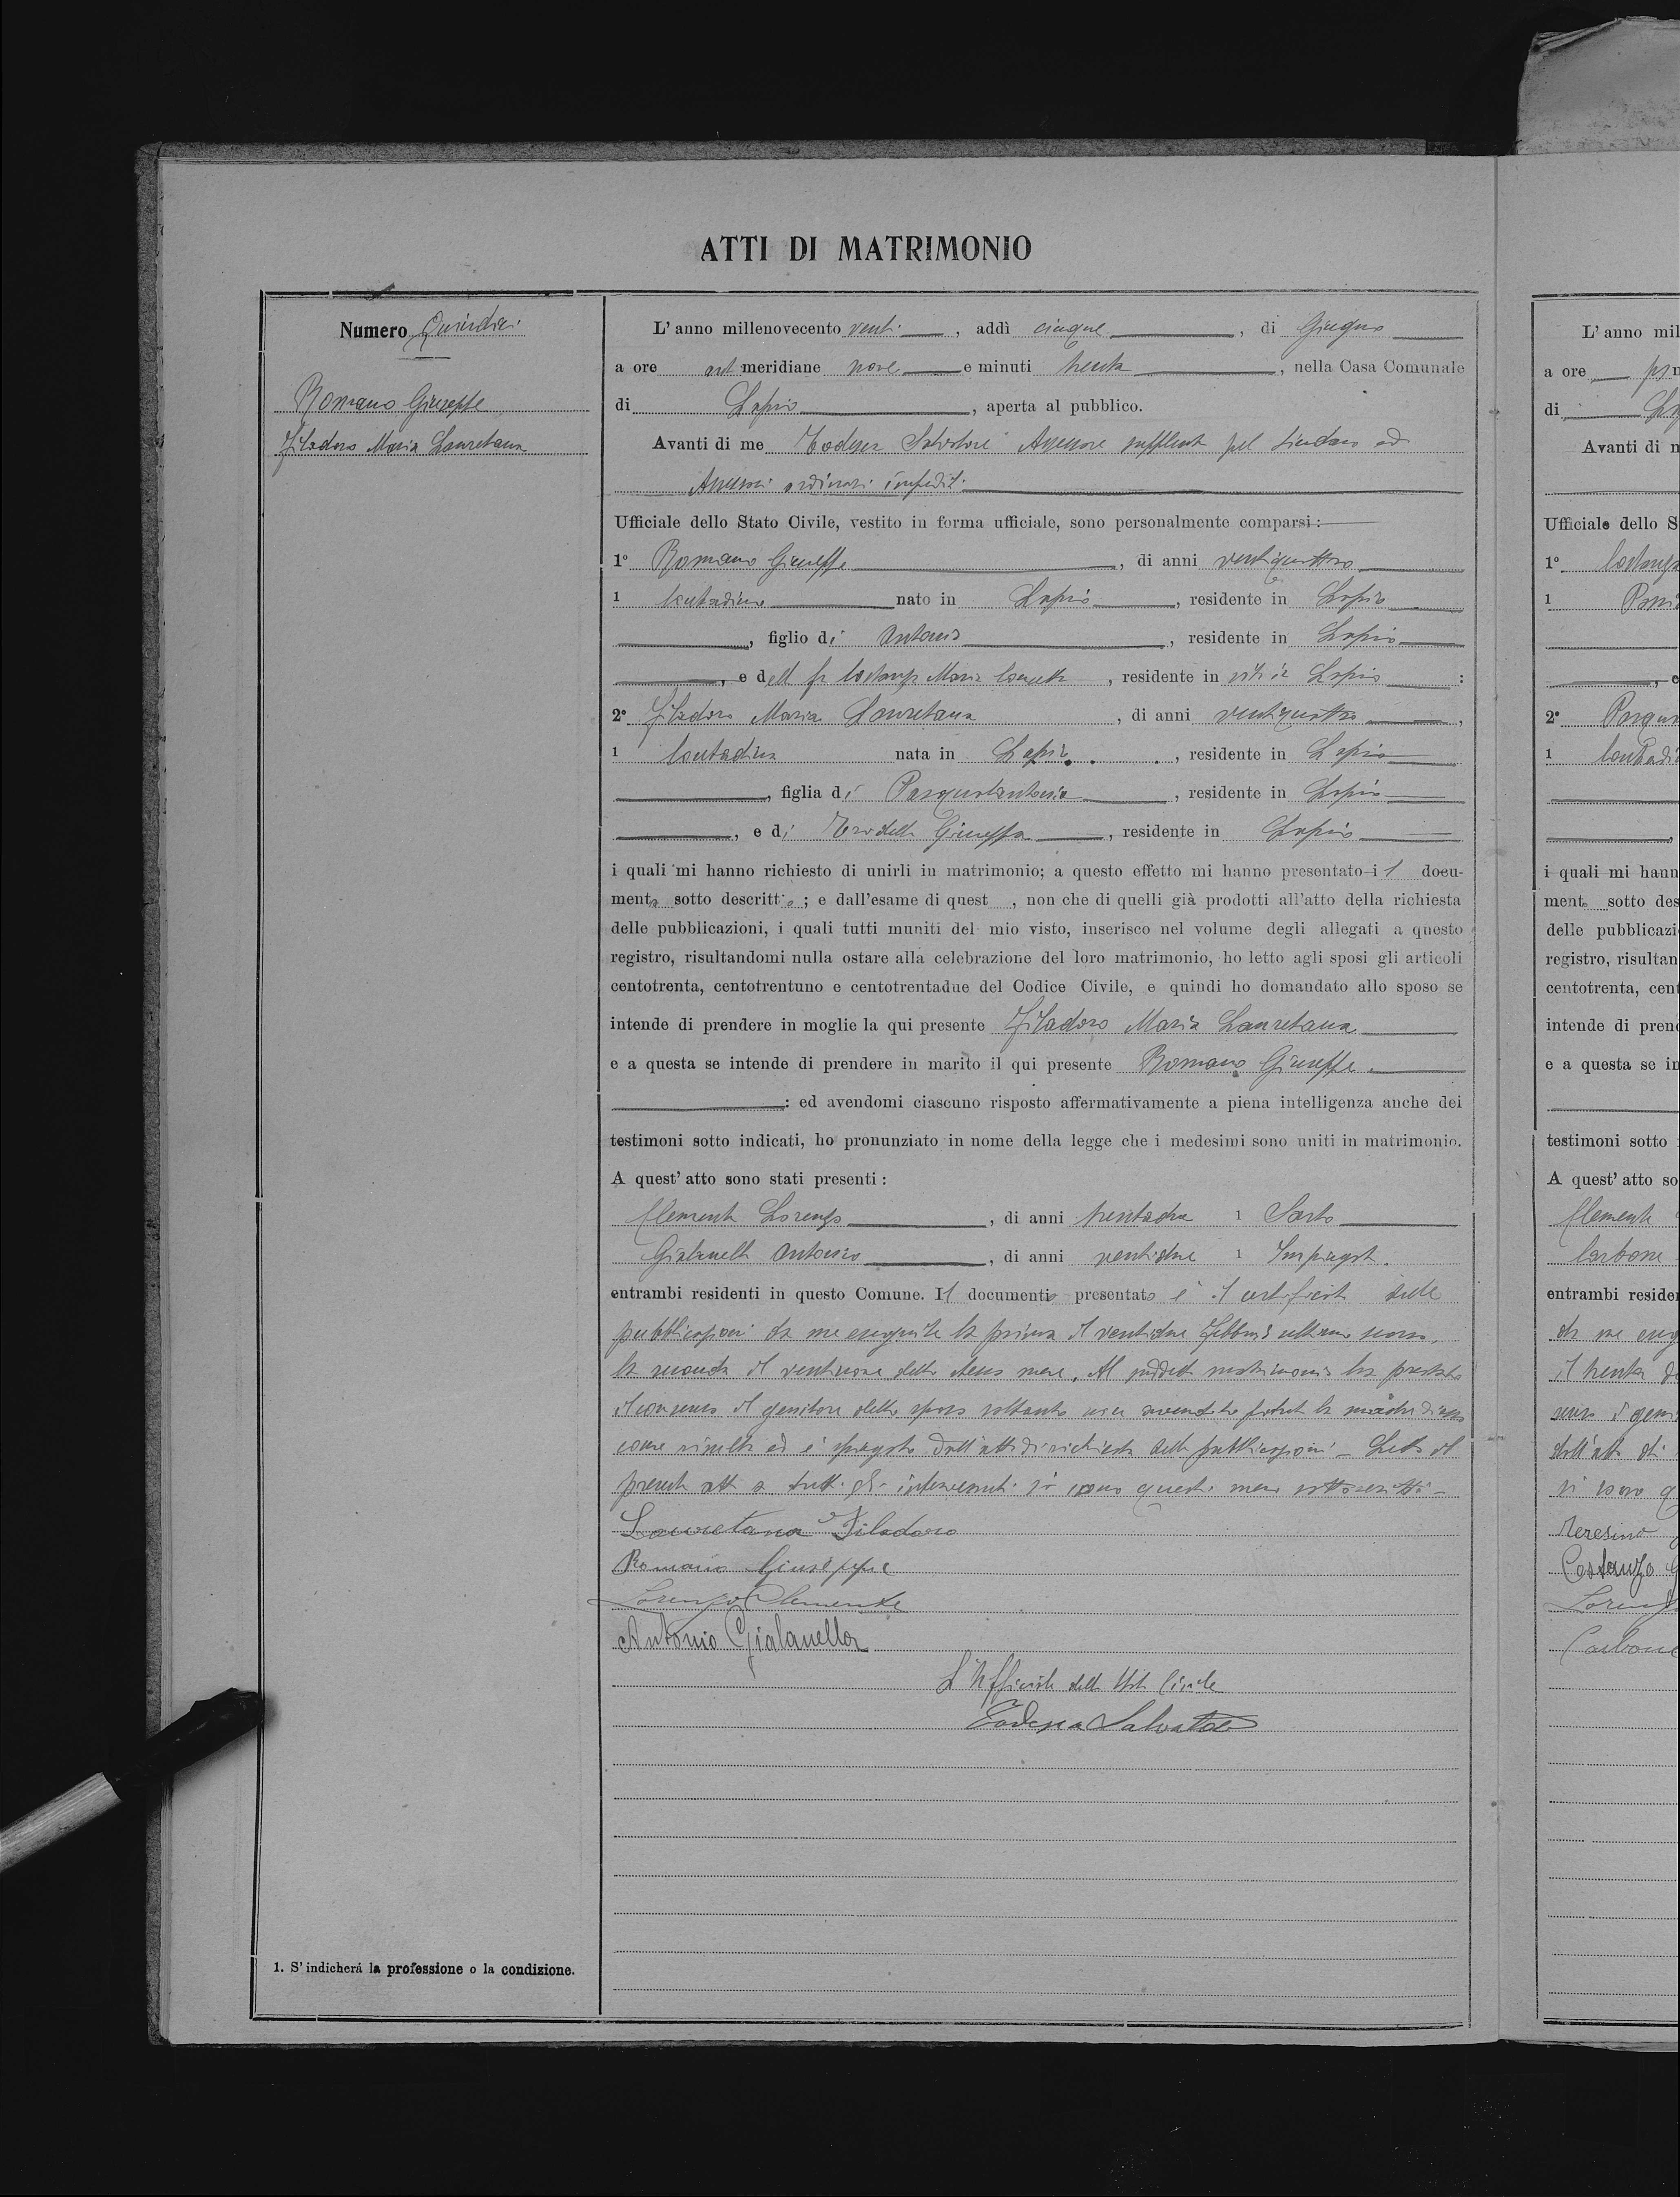 ATTI DI MATRIMONIO
Numero Quindici
Romano Giuseppe
Filadoro Maria Lauretana
1. S'indicherá la professione o la condizione.
L'anno millenovecento venti, addì cinque, di Giugno
a ore ant meridiane nove e minuti trenta, nella Casa Comunale
di Lapio, aperta al pubblico.
Avanti di me Todesca Salvatore Assessore supplente pel Sindaco ed
Assessori ordinari impediti
Ufficiale dello Stato Civile, vestito in forma ufficiale, sono personalmente comparsi:
1° Romano Giuseppe, di anni ventiquattro
1 Contadino nato in Lapio, residente in Lapio
, figlio di Antonio, residente in Lapio
, e della fu Costanza Maria, residente in vita in Lapio:
2° Filadoro Maria Lauretana, di anni ventiquattro,
1 Contadina nata in Lapio, residente in Lapio
, figlia di Pasqualantonio, residente in Lapio
, e di Giuseppa, residente in Lapio
i quali mi hanno richiesto di unirli in matrimonio; a questo effetto mi hanno presentato il docu-
mento sotto descritto; e dall'esame di quest, non che di quelli già prodotti all'atto della richiesta
delle pubblicazioni, i quali tutti muniti del mio visto, inserisco nel volume degli allegati a questo
registro, risultandomi nulla ostare alla celebrazione del loro matrimonio, ho letto agli sposi gli articoli
centotrenta, centotrentuno e centotrentadue del Codice Civile, e quindi ho domandato allo sposo se
intende di prendere in moglie la qui presente Filadoro Maria Lauretana
e a questa se intende di prendere in marito il qui presente Romano Giuseppe.
: ed avendomi ciascuno risposto affermativamente a piena intelligenza anche dei
testimoni sotto indicati, ho pronunziato in nome della legge che i medesimi sono uniti in matrimonio.
A quest'atto sono stati presenti:
Clemente Lorenzo, di anni trentadue 1 Sarto
Gialanella Antonio, di anni ventidue 1 Impiegato.
entrambi residenti in questo Comune. Il documento presentato è il certificato delle
pubblicazioni da me eseguite la prima il ventidue Febbraio ultimo scorso,
la seconda il ventinove dello stesso mese. Al suddetto matrimonio ha prestato
il consenso il genitore dello sposo soltanto non avendolo potuto la madre
come risulta ed è spiegato dall'atto di richiesta delle pubblicazioni - Letto il
presente atto a tutti gli intervenuti si sono questi meco sottoscritti -
Lauretana Filadoro
Romano Giuseppe
Lorenzo Clemente
Antonio Gialanella
L'Ufficiale dello Stato Civile
Todesca Salvatore
L'anno mil
a ore
di
Avanti di m
Ufficiale dello S
1°
1
2°
1 Contadi
i quali mi hann
ment sotto des
delle pubblicazi
registro, risultan
centotrenta, cent
intende di prend
e a questa se in
testimoni sotto
A quest'atto so
Clemente
Carbone
entrambi reside
da me eseg
il trenta
dell'atto di
si sono q
Teresina
Costanzo G
Lorenz
Carbone